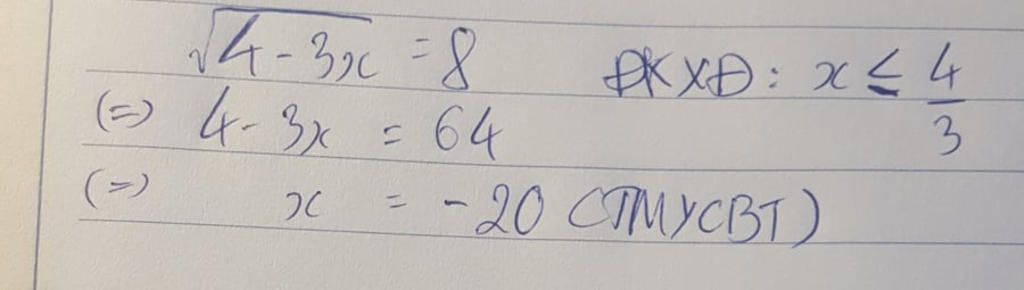 √4-3x = 8 ĐKXĐ: x ≤ 4/3
(=) 4-3x = 64
(=) x = -20 (TMYCBT)